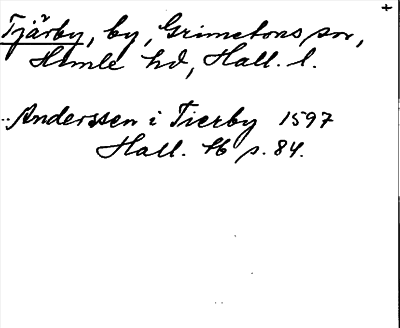 Tjärby, by, Grimetons sn,
Himle hd, Hall. l.
..Anderssen i Tierby 1597
Hall. 16 s. 84.